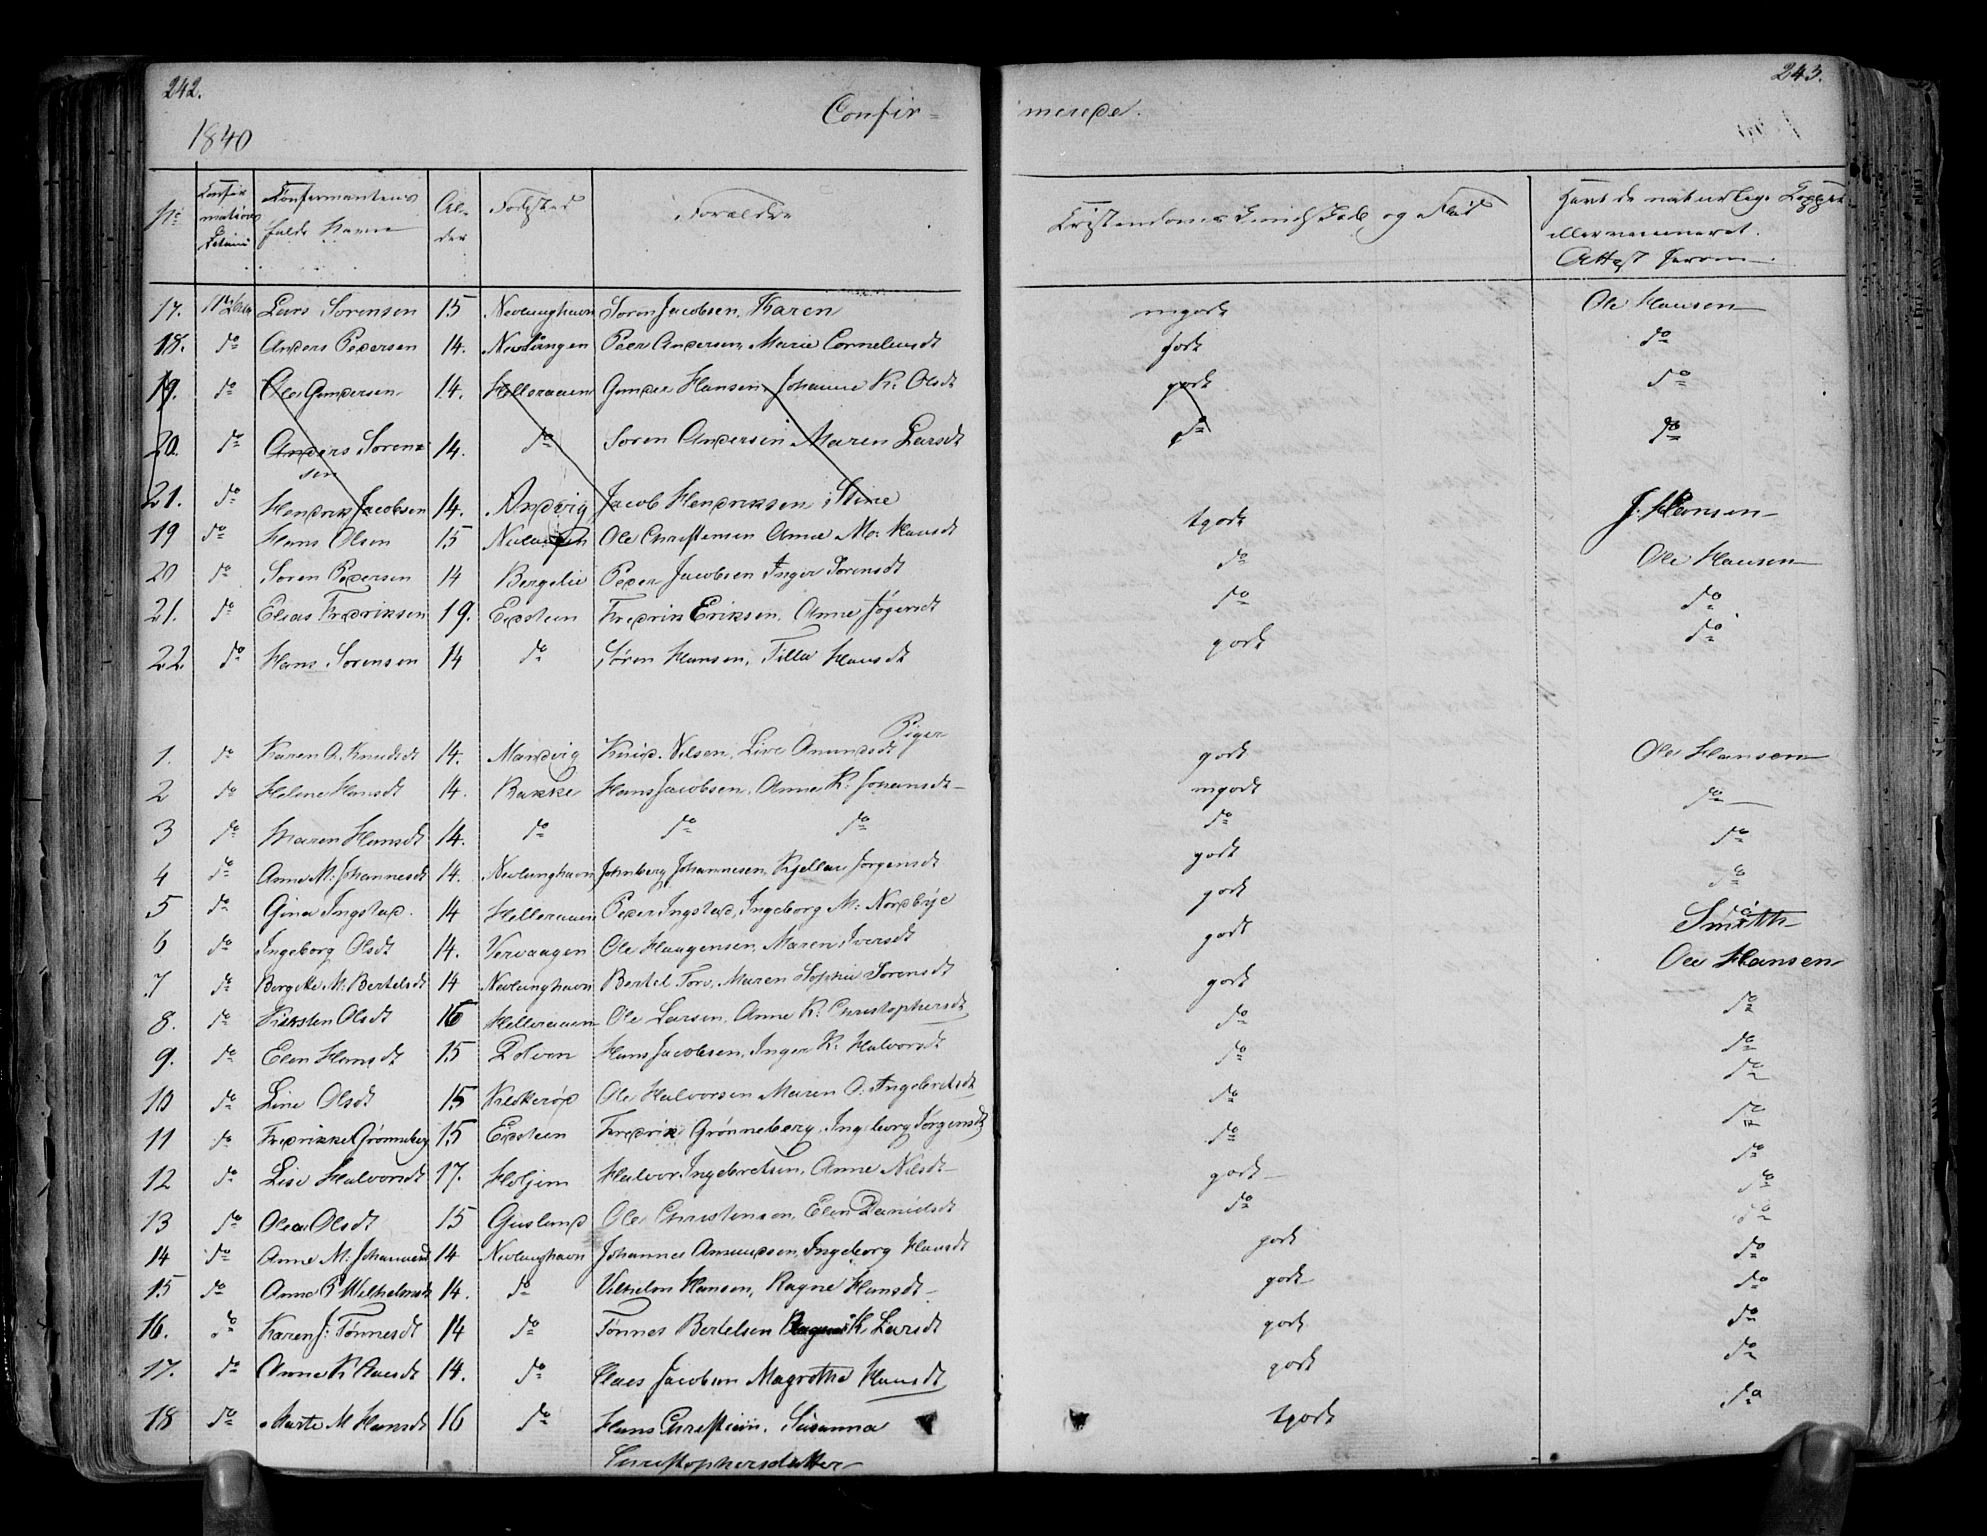 242.
243.
Confir=
merede.
1840
No
Confirmantens fulde Navn
Alder
Fødested
Forældre
Kristendoms Kundskab og Flid
Havt de naturlige Kopper
eller vaccineret.
Attest herom
17. Lars Sorensen 15 Nevlunghavn Soren Jacobsen, Karen mgodt Ole Hansen
18. do Anders Pedersen 14. Nevlungen Peer Andersen, Marie Cornelius dt godt do
19. do Ole Gundersen 14. Helleraaen Gunder Hansen, Johanne K. Olsdt godt do
20. do Anders Soren= 14. do Soren Andersen Maren Larsdt do do
sen
21. do Hendrik Jacobsen 14. Andvig Jacob Hendriksen, Stine tgodt J. Hansen
19 do Hans Olsen 15 Ole Christensen Anne M: Hansdt do Ole Hansen
20 do Soren Pedersen 14 Bergelie Peder Jacobsen Inger Sorensdt do do
21. do Elias Fredriksen 19. Edsteen Fredrik Eriksen, Anne
22 do Hans Sorensen 14 do Søren Hansen, Hansdt godt do
Piger
1. do Karen A. Knudsdt 14. Manvig Knud Nilsen, Live Amundsdt godt Ole Hansen
2 do Helene Hansdt 14. Rakke Hans Jacobsen, Anne K. Johansdt mgodt do
3 do Maren Hansdt 14. do do do do do
4 do Anne M: Johannesdt 14. Nevlunghavn Johannesen, Jorgensdt godt do
5 do Gina Ingstad. 14 Helleraaen Peder Ingstad, Ingeborg M: Nordbye godt do
6 do Ingeborg Olsdt 14. Vervaagen Ole Haagensen, Maren Iversdt godt Smith
7 do M: Bertelsdt 14 Nevlunghavn Bertel Torv, Maren Sophie Sorensdt godt Ole Hansen
8. do Kirsten Olsdt 16 Helleraaen Ole Larsen, Anne K. Christophersdt do do
9. do Elen Hansdt 15 Dolven Hans Jacobsen, Inger K. Halvorsdt do do
10 do Line Olsdt 15 Ole Halvorsen Maren O: Ingebretsdt do do
11 do Fredrikke Grønneberg 15 Edsteen Fredrik Grønneberg, Ingeborg Jørgensdt do do
12 do Lise Halvorsdt 17. Holjem Halvor Ingebretsen, Anne Nilsdt godt do
13 do Olea Olsdt 15 Gusland Ole Christensen, Elen Danielsdt do do
14 do Anne M: Johannesdt 14 Nevlunghavn Johannes Amundsen, Ingeborg Hansdt godt do
15 do Anne Wilhelmsdt 14. do Vilhelm Hansen, Ragne Hansdt godt do
16. do Karen J: Tønnesdt 14 do Tønnes Bertelsen K. Larsdt godt do
17. do Anne K Claesdt 14. do Claes Jacobsen Magrethe Hansdt godt do
18 do Marte M Hansdt 16 do Hans Christian, Susanna tgodt do
Christophersdatter